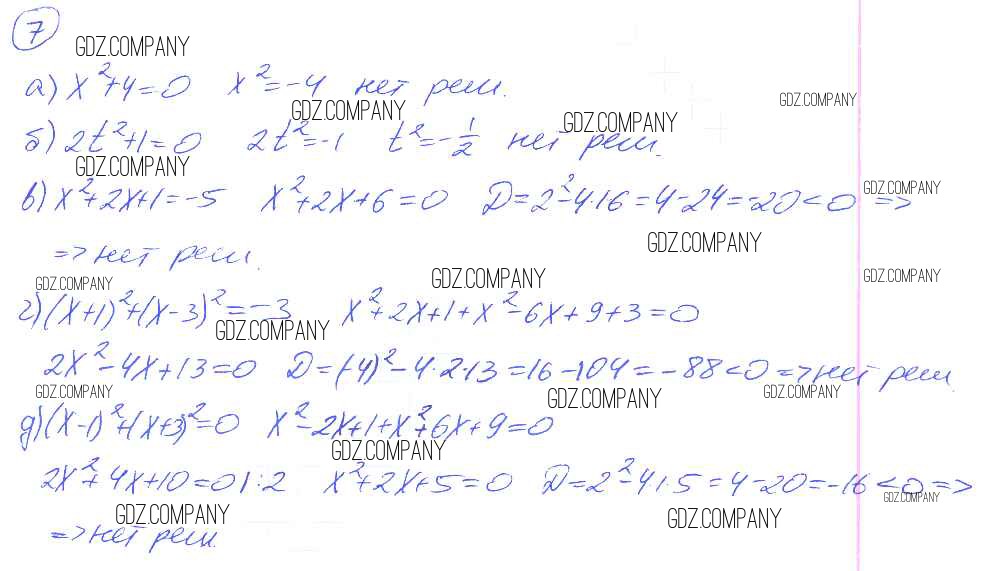 7
GDZ.COMPANY
а) x²+4=0 x²=-4 нет реш.
GDZ.COMPANY GDZ.COMPANY GDZ.COMPANY
б) 2t²+1=0 2t²=-1 t²=-1/2 нет реш.
GDZ.COMPANY
в) x²+2x+1=-5 x²+2x+6=0 D=2²-4·1·6=4-24=-20<0 =>
GDZ.COMPANY
GDZ.COMPANY
=> нет реш.
GDZ.COMPANY GDZ.COMPANY GDZ.COMPANY
г) (x+1)²+(x-3)²=-3 x²+2x+1+x²-6x+9+3=0
GDZ.COMPANY
2x²-4x+13=0 D=(-4)²-4·2·13=16-104=-88<0 => нет реш.
GDZ.COMPANY GDZ.COMPANY GDZ.COMPANY
д) (x-1)²+(x+3)²=0 x²-2x+1+x²+6x+9=0
GDZ.COMPANY
2x²+4x+10=0 |:2 x²+2x+5=0 D=2²-4·1·5=4-20=-16<0 =>
GDZ.COMPANY
GDZ.COMPANY GDZ.COMPANY
=> нет реш.